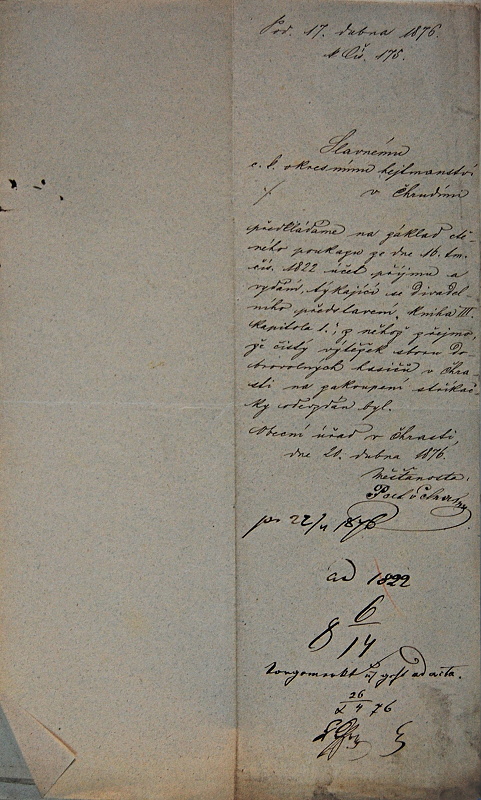 Pod. 17. dubna 1876.
N Čís. 175.
Slavnému
c. k. okresnímu hejtmanství
v Chrudimi
předkládáme na základ ctě-
ného poukazu ze dne 16. t.m.
čís. 1822 účet příjmu a
vydání, týkající se divadel-
ního představení, kniha III.
kapitola 1., z něhož přejmo,
že čistý výtěžek sboru do-
brovolných hasičů v Chra-
sti na zakoupení stříkač-
ky odevzdán byl.
Obecní úřad v Chrasti,
dne 20. dubna 1876.
Měšťanosta:
pr 22/4 1876
ad 1822
8 6/14
Vorgemerkt u geht ad acta.
26/4 76